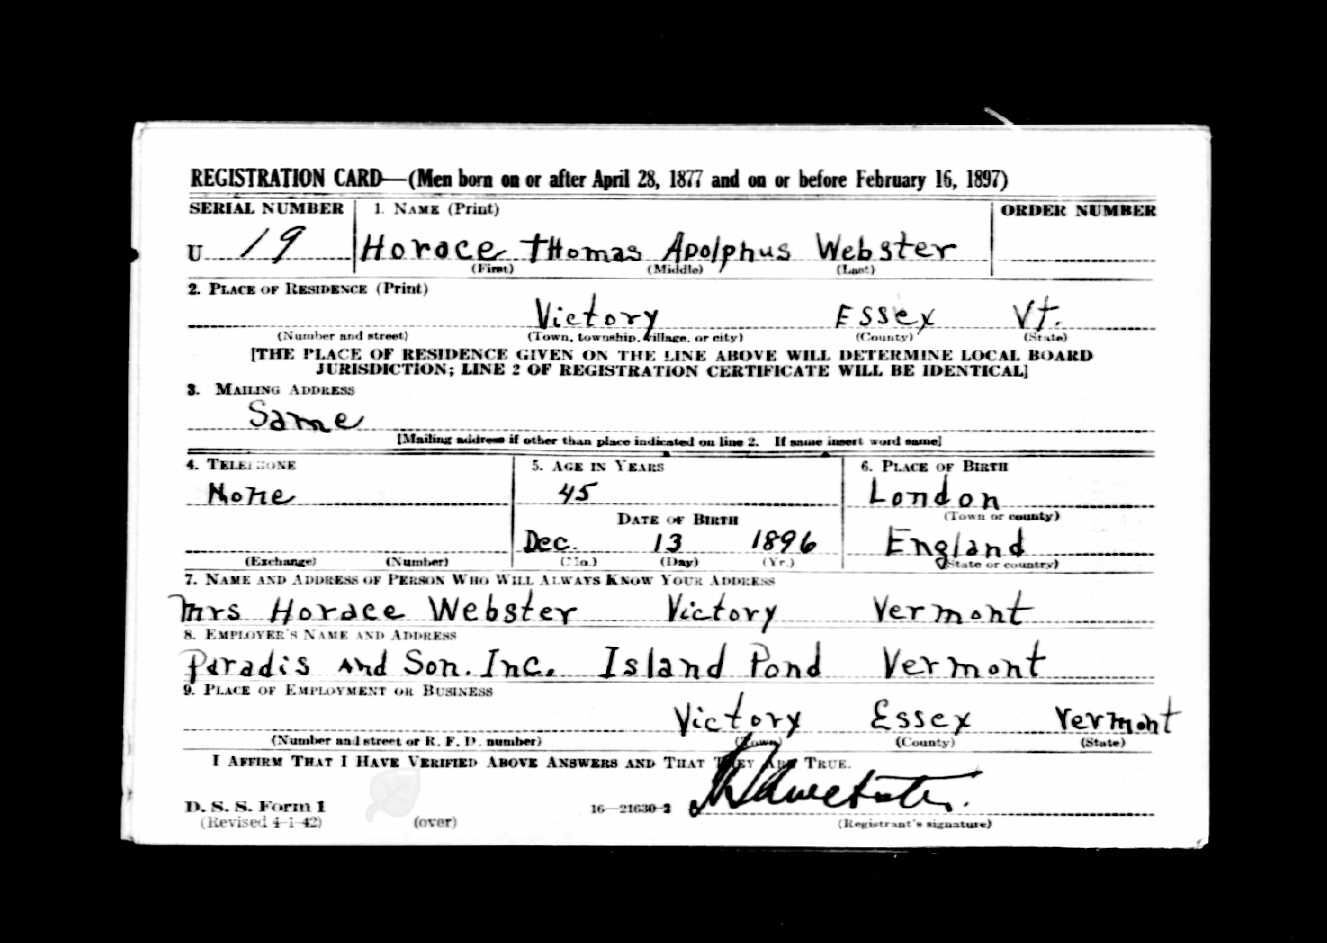 REGISTRATION CARD—(Men born on or after April 28, 1877 and on or before February 16, 1897)
SERIAL NUMBER 1. NAME (Print) ORDER NUMBER
U 19 Horace Thomas Apolphus Webster
(First) (Middle) (Last)
2. PLACE OF RESIDENCE (Print)
Victory Essex Vt.
(Number and street) (Town, township, village, or city) (County) (State)
[THE PLACE OF RESIDENCE GIVEN ON THE LINE ABOVE WILL DETERMINE LOCAL BOARD
JURISDICTION; LINE 2 OF REGISTRATION CERTIFICATE WILL BE IDENTICAL]
3. MAILING ADDRESS
Same
[Mailing address if other than place indicated on line 2. If same insert word same]
4. TELEPHONE 5. AGE IN YEARS 6. PLACE OF BIRTH
None 45 London
(Town or county)
DATE OF BIRTH
Dec. 13 1896 England
(Exchange) (Number) (Mo.) (Day) (Yr.) (State or country)
7. NAME AND ADDRESS OF PERSON WHO WILL ALWAYS KNOW YOUR ADDRESS
Mrs Horace Webster Victory Vermont
8. EMPLOYER'S NAME AND ADDRESS
Paradis and Son. Inc. Island Pond Vermont
9. PLACE OF EMPLOYMENT OR BUSINESS
Victory Essex Vermont
(Number and street or R. F. D. number) (Town) (County) (State)
I AFFIRM THAT I HAVE VERIFIED ABOVE ANSWERS AND THAT THEY ARE TRUE.
D. S. S. Form 1 16—21630-2
(Revised 4-1-42) (over) (Registrant's signature)